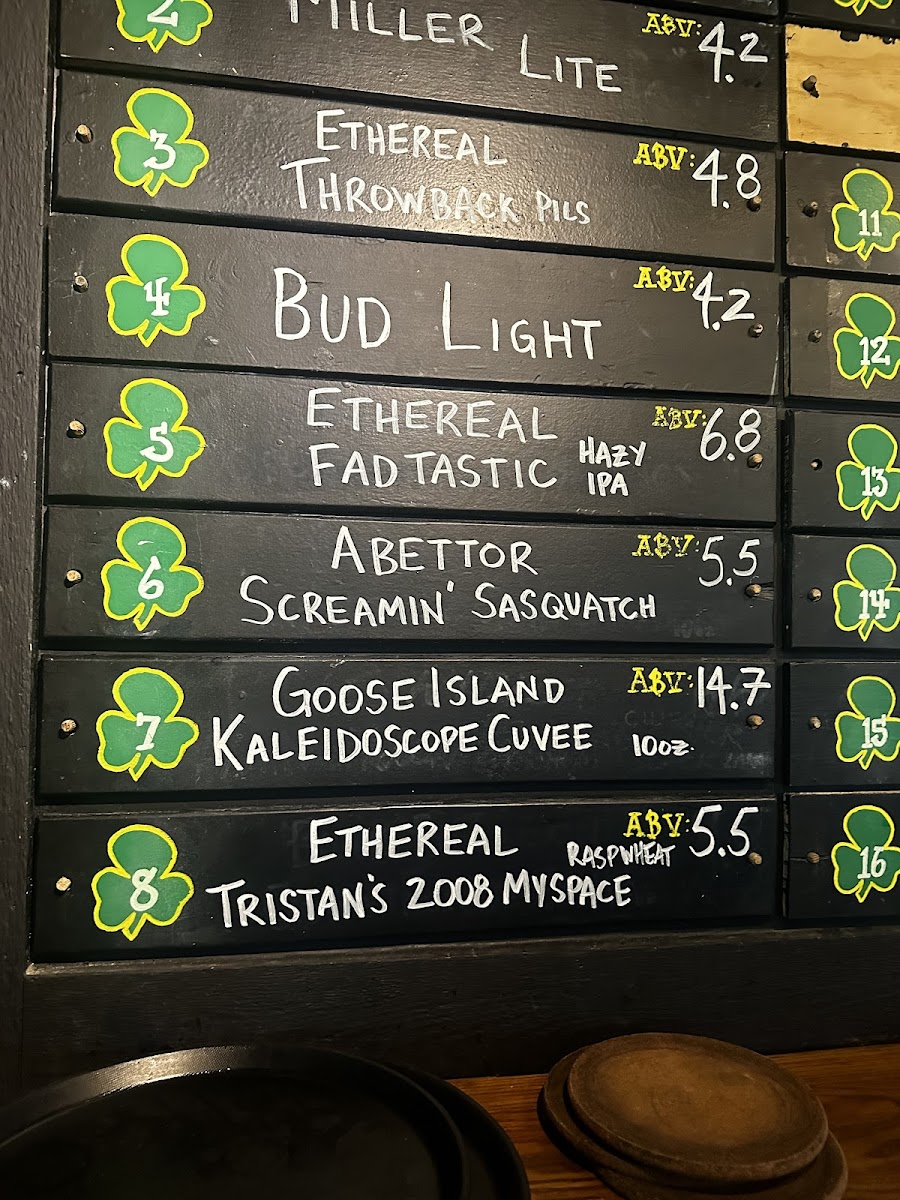 2 MILLER LITE ABV: 4.2
3 ETHEREAL ABV: 4.8
THROWBACK PILS
4 BUD LIGHT ABV: 4.2
5 ETHEREAL ABV: 6.8
FADTASTIC HAZY
IPA
6 ABETTOR ABV: 5.5
SCREAMIN' SASQUATCH
7 GOOSE ISLAND ABV: 14.7
KALEIDOSCOPE CUVEE 10oz.
8 ETHEREAL ABV: 5.5
RASPWHEAT
TRISTAN'S 2008 MYSPACE
11
12
13
14
15
16